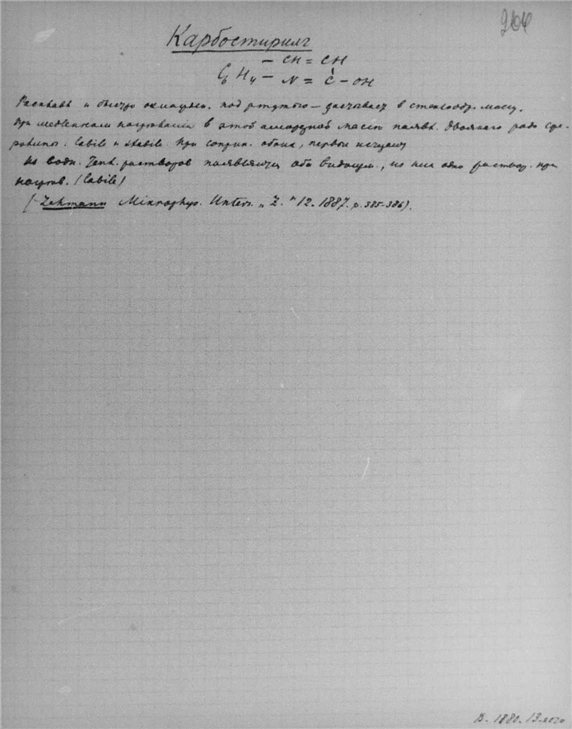 264
Карбостирилъ
– CH = CH
C6 H4 – N = C – OH
Расплавъ и быстро охлажд. под ртутью – застываетъ в стеклообр. массу.
При медленном нагревании в этой аморфной массе появл. двоякого рода сфе-
ролиты: labile и stabile. При соприк. обоих, первые исчезают
Из водн. растворов появляются оба видоизм., но них одно раств. при
нагрев. (labile)
(Lehmann Mikrophys. Unters. „Z." 12. 1887. p. 385-386).
1880. 13